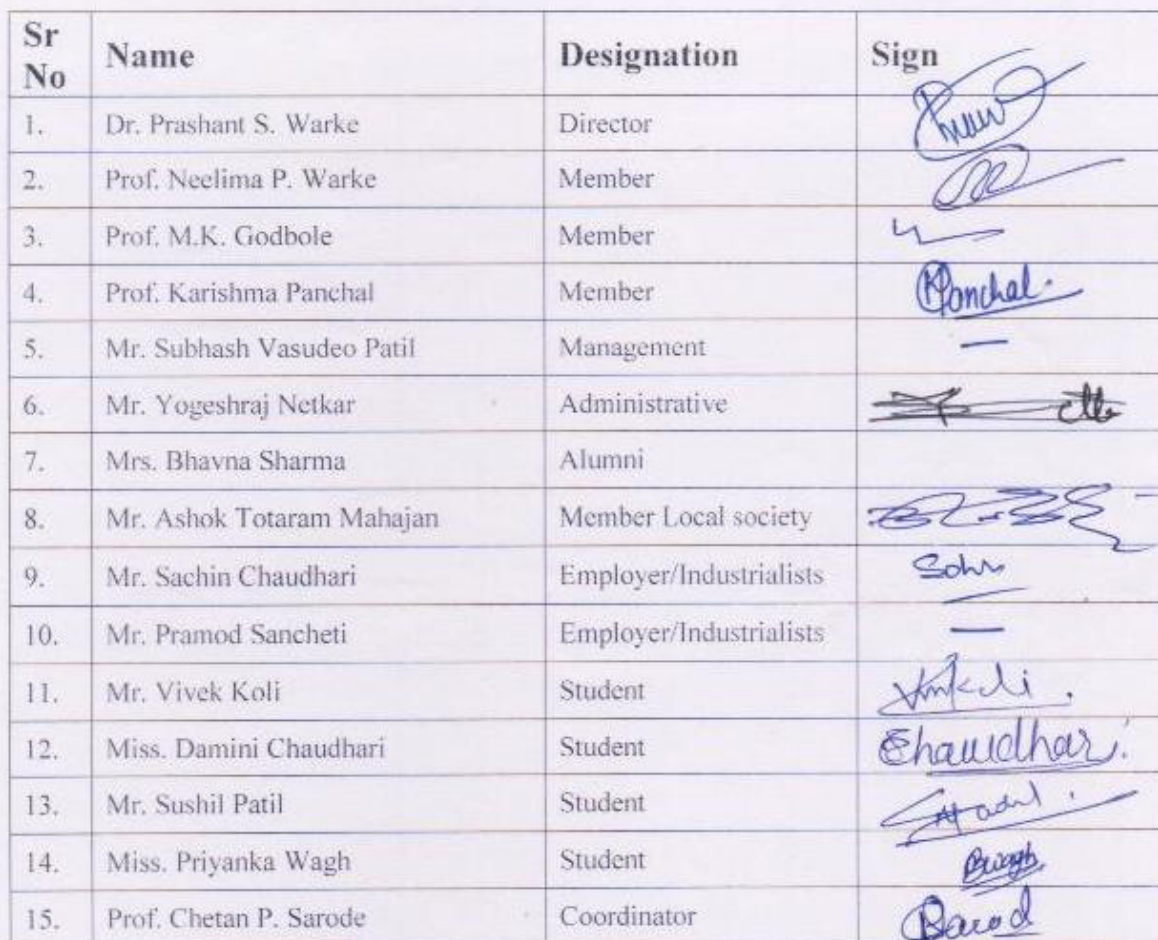 Sr No Name Designation Sign
1. Dr. Prashant S. Warke Director
2. Prof. Neelima P. Warke Member
3. Prof. M.K. Godbole Member
4. Prof. Karishma Panchal Member Panchal
5. Mr. Subhash Vasudeo Patil Management —
6. Mr. Yogeshraj Netkar Administrative
7. Mrs. Bhavna Sharma Alumni
8. Mr. Ashok Totaram Mahajan Member Local society
9. Mr. Sachin Chaudhari Employer/Industrialists
10. Mr. Pramod Sancheti Employer/Industrialists —
11. Mr. Vivek Koli Student
12. Miss. Damini Chaudhari Student
13. Mr. Sushil Patil Student
14. Miss. Priyanka Wagh Student
15. Prof. Chetan P. Sarode Coordinator